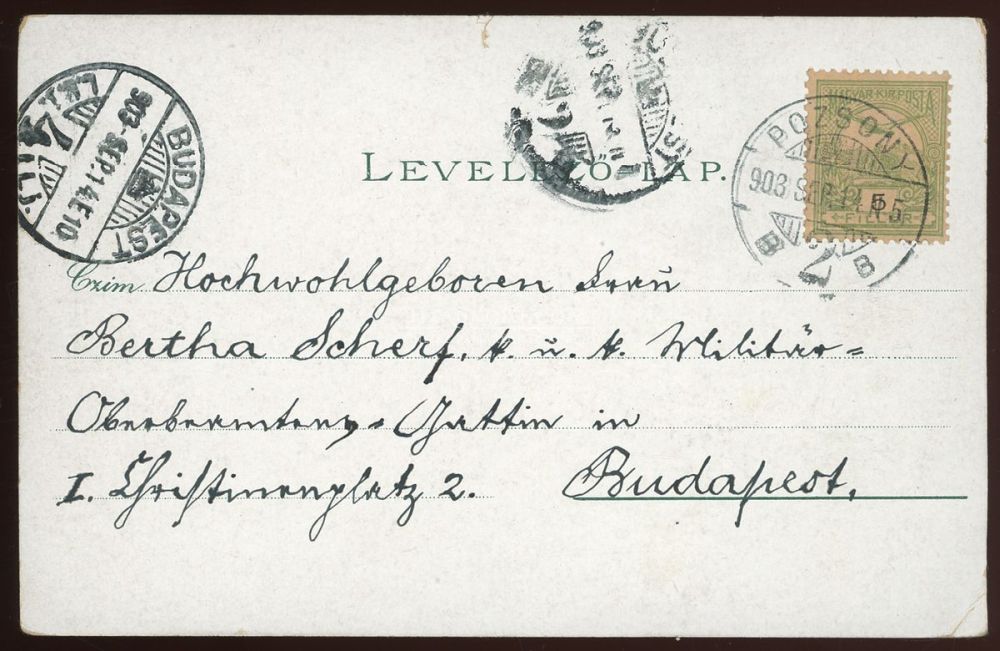 LEVELEZŐ-LAP.
MAGYAR KIR. POSTA
5
FILLÉR
POZSONY
903 SEP. 14 N 5
B 2 B
BUDAPEST
903 SEP. 14 E 10
Czim Hochwohlgeboren Frau
Bertha Scherf, k. u. k. Militär=
Oberbeamtens=Gattin in
I. Christinenplatz 2. Budapest.